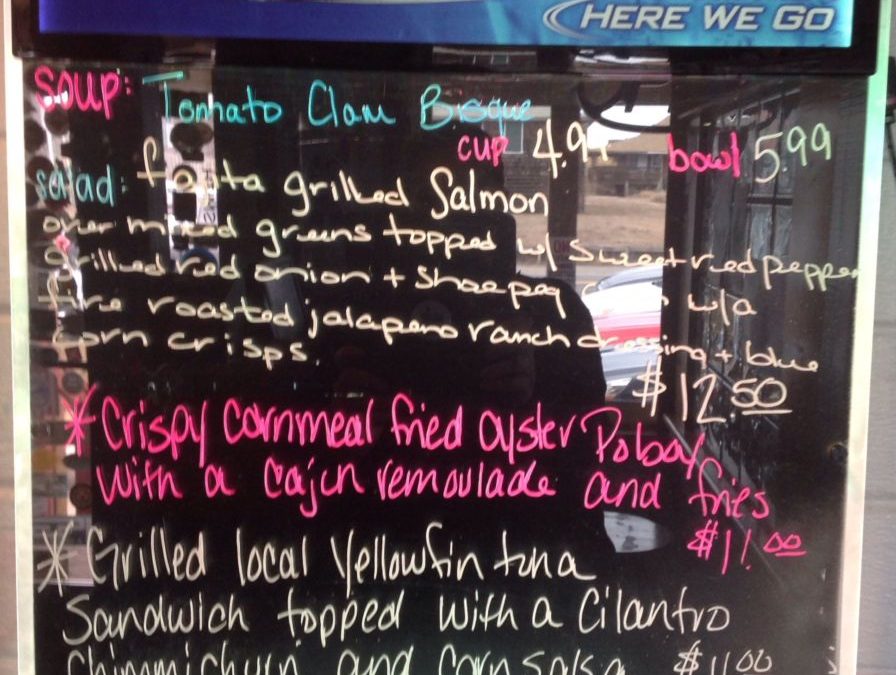 HERE WE GO
Soup: Tomato Clam Bisque
cup 4.99 bowl 5.99
salad: fajita grilled Salmon
over mixed greens topped w/ sweet red pepper
grilled red onion + shoepeg w/a
fire roasted jalapeno ranch dressing + blue
corn crisps.
$12.50
* Crispy cornmeal fried oyster Poboy
with a cajun remoulade and fries
$11.00
* Grilled local Yellowfin tuna
Sandwich topped with a Cilantro
Chimmichurri and corn salsa $11.00